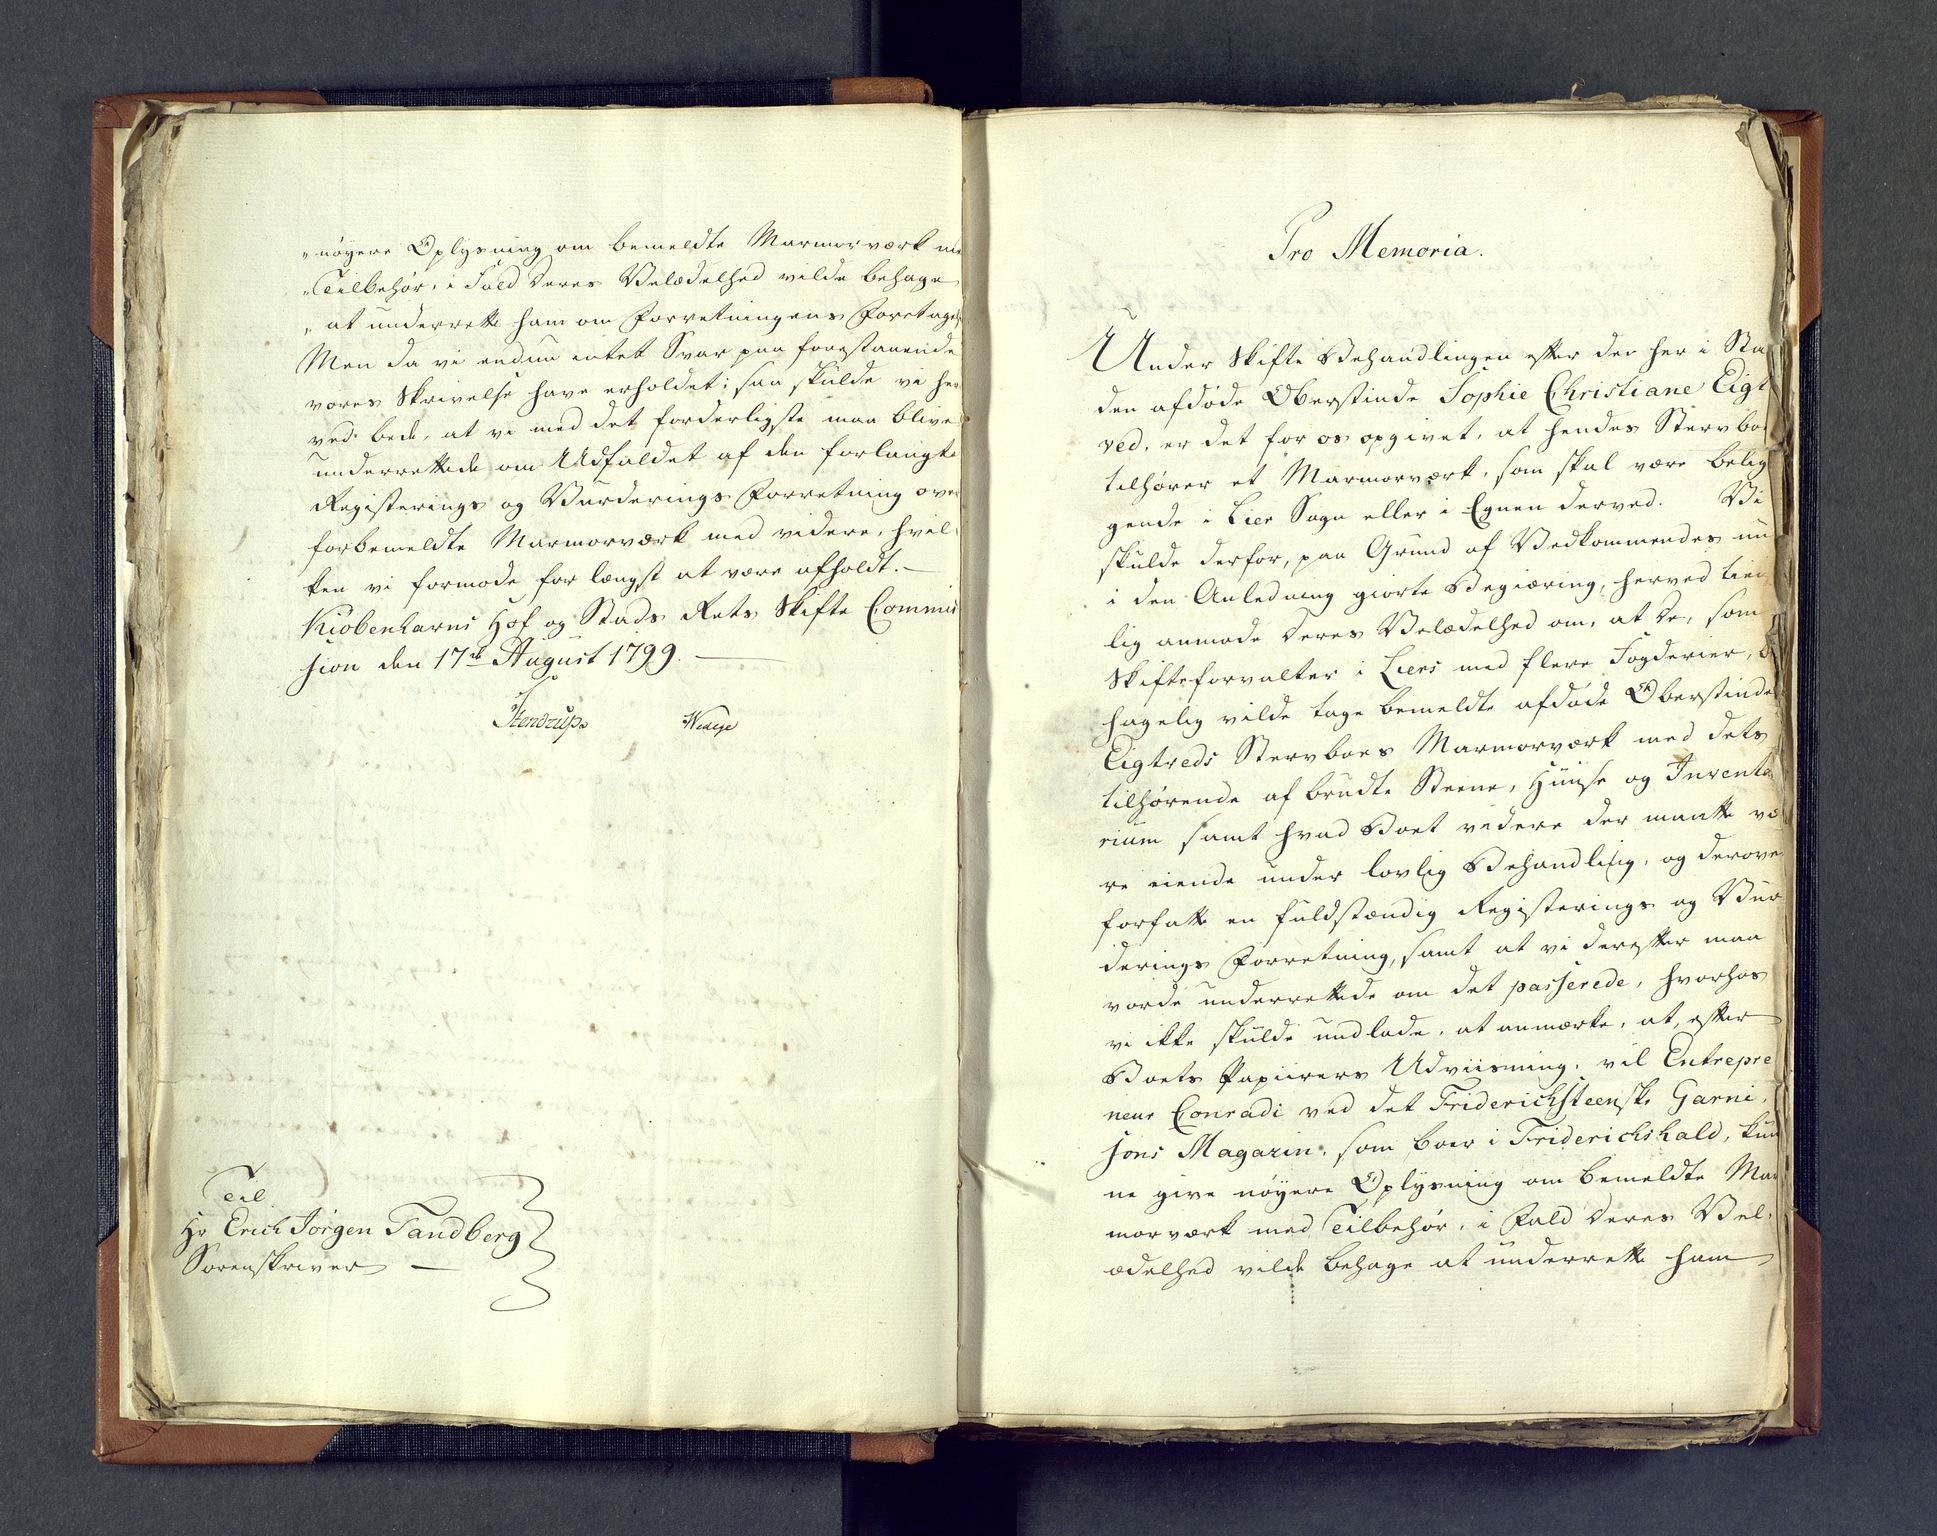 „nöyere Oplysning om bemeldte Marmorværk me
„Tilbehør, i Fald Deres Velædelhed vilde behage
„at underrette ham om Forretningens Foretagel
Men da vi endnu intet Svar paa forestaaende
vores Skrivelse have erholdet; saa skulde vi her
ved bede, at vi med det forderligste maa blive
underrettede om Udfaldet af den forlangte
Registerings og Vurderings Forretning over
forbemeldte Marmorværk med videre, hvil-
ken vi formode for længst at være afholdt.—
Kiöbenhavns Hof og Stads Rets Skifte Commis
sion den 17de August 1799.—
Stendrup
Til
Hr Erich Jörgen Tandberg
Sorenskriver—
Pro Memoria.
Under Skifte Behandlingen efter den her i Sta
den afdöde Oberstinde Sophie Christiane Eigt
ved, er det for os opgivet, at hendes Stervboe
tilhører et Marmorværk, som skal være belig
gende i Lier Sogn eller i Egnen derved. Vi
skulde derfor, paa Grund af Vedkommendes nu
i den Anledning giorte Begiæring, herved tien
lig anmode Deres Velædelhed om, at De, som
Skifteforvalter i Liers med flere Fogderier, be
hagelig vilde tage bemeldte afdöde Oberstinde
Eigtveds Stervboes Marmorværk med dets
tilhørende af brudte Steene, Huuse og Inventa
rium samt hvad Boet videre der maatte væ
re eiende under lovlig Behandling, og derover
forfatte en fuldstændig Registerings og Vur
derings Forretning, samt at vi derefter maa
vorde underrettede om det passerede, hvorhos
vi ikke skulde undlade, at anmærke, at, efter
Boets Papiirers Udviisning, vil Entrepre
neur Conradi ved det Friderichsteenske Garni-
sons Magazin, som boer i Friderichshald, kun
ne give nöyere Oplysning om bemeldte Mar
morværk med Tilbehør, i Fald Deres Vel-
ædelhed vilde behage at underrette ham